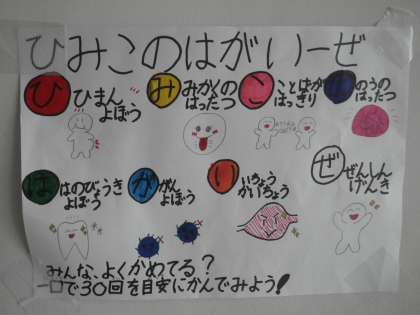 ひみこのはがいーぜ
ひ ひまんよぼう
み みかくのはったつ
こ ことばがはっきり
のうのはったつ
は はのびょうきよぼう
が がんよぼう
い いちょうかいちょう
ぜ ぜんしんげんき
みんな、よくかめてる?
一口で30回を目安にかんでみよう!